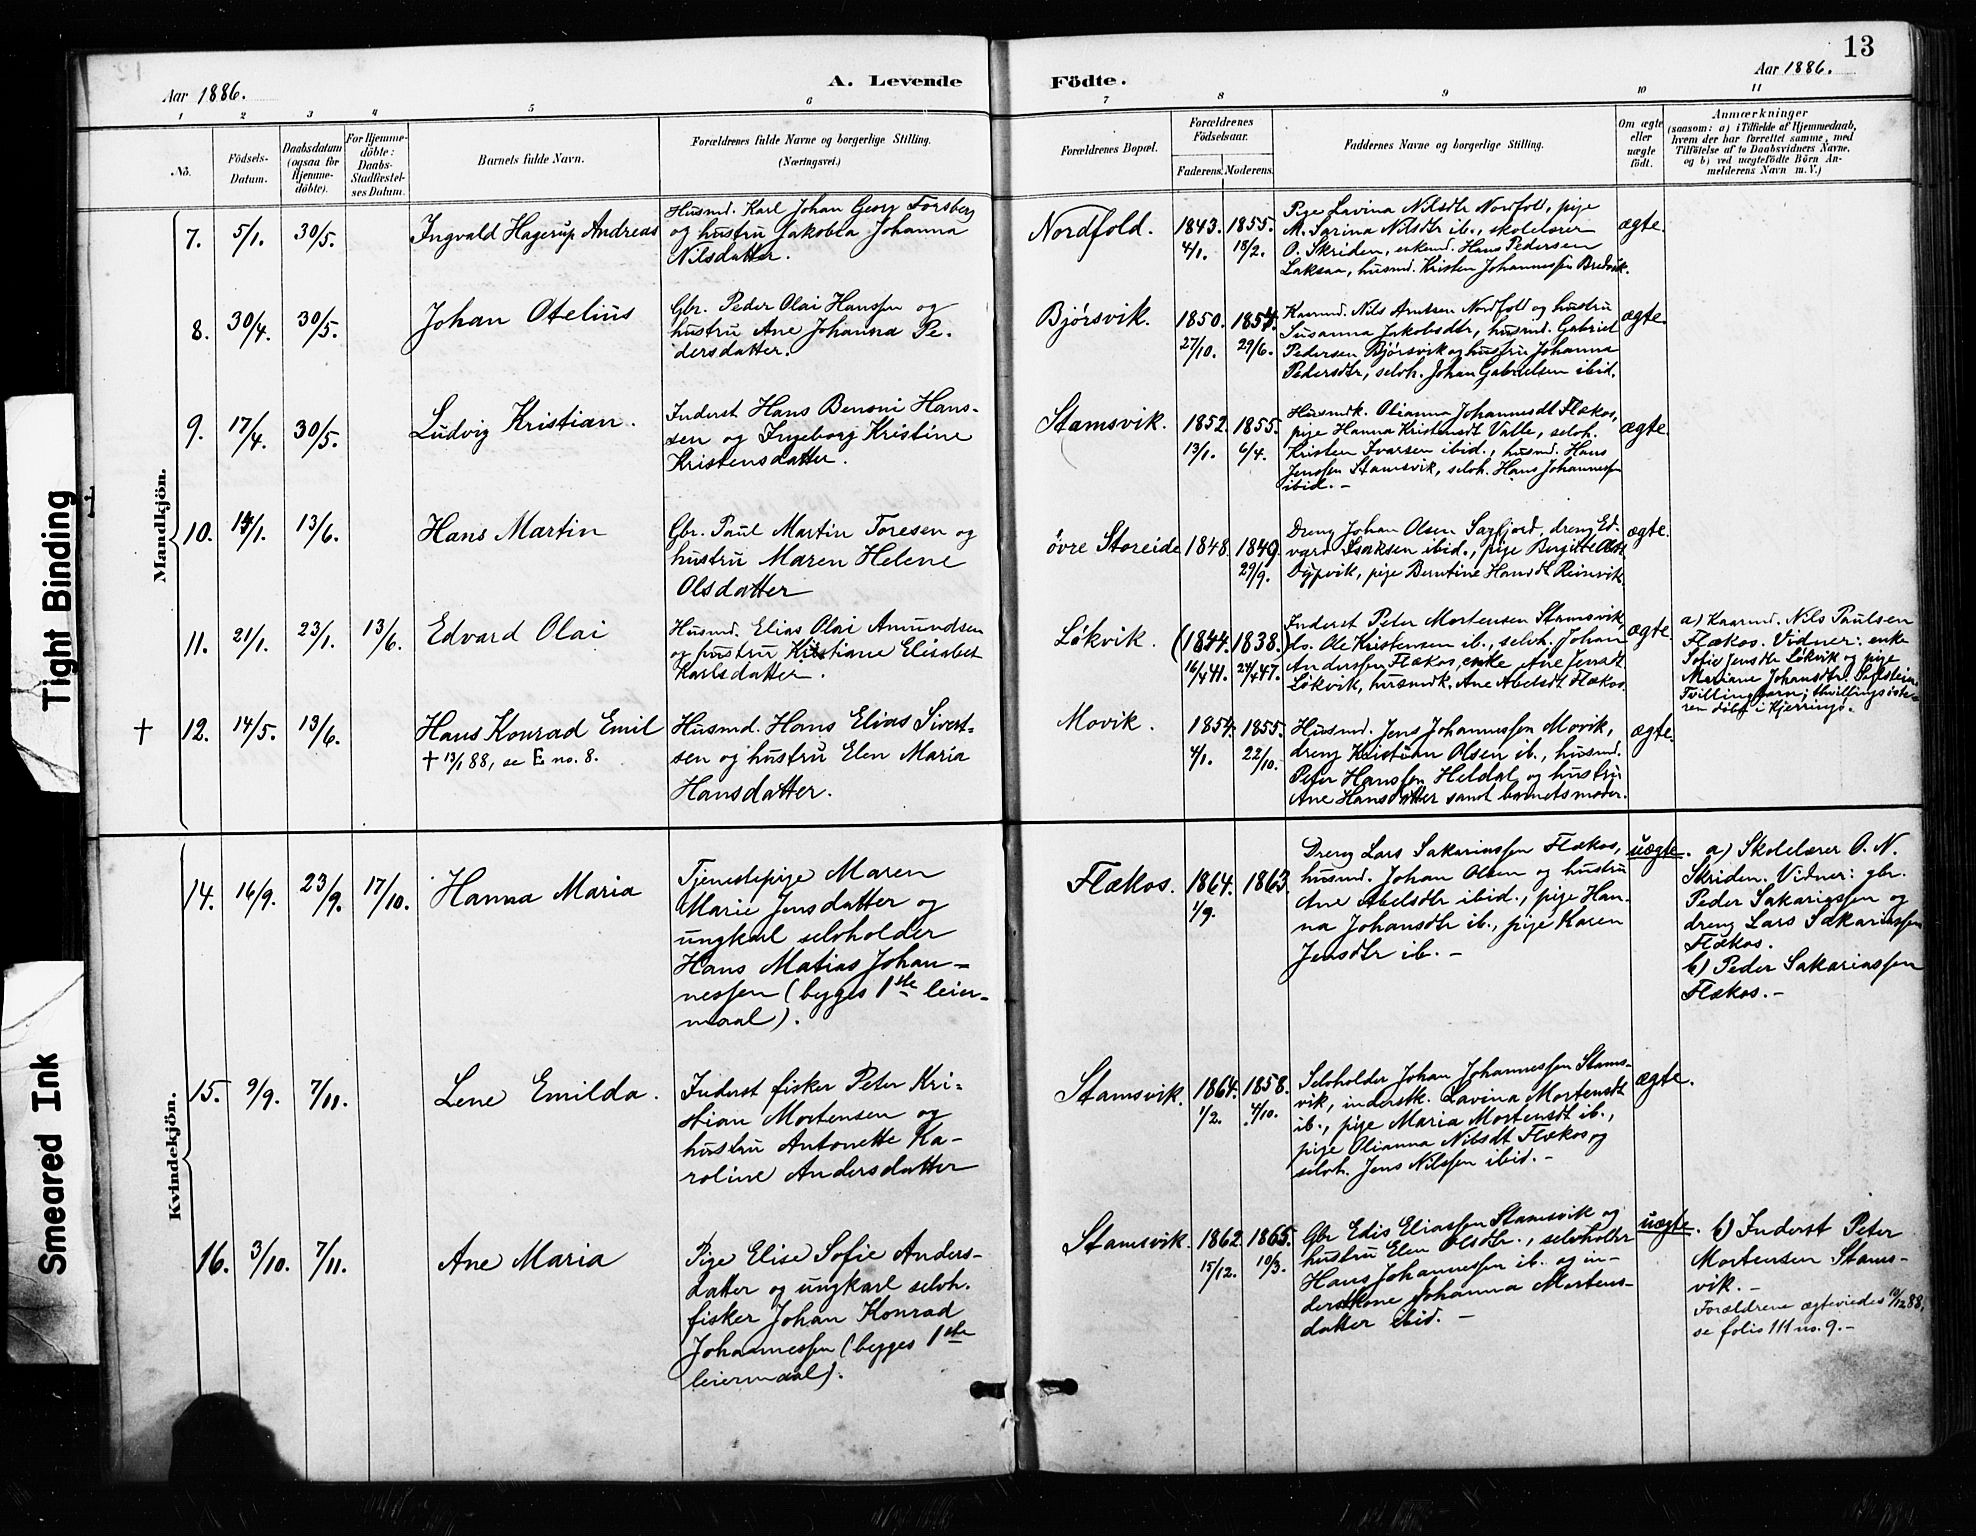 13
Aar 1886.
A. Levende
Födte.
Aar 1886.
1 2 3 4 5 6 7 8 9 10 11
No.
Födsels-
Datum.
Daabsdatum
(ogsaa for
Hjemme-
döbte).
For Hjemme-
döbte:
Daabs-
Stadfæstel-
ses Datum.
Barnets fulde Navn.
Forældrenes fulde Navne og borgerlige Stilling.
(Næringsvei.)
Forældrenes Bopæl.
Forældrenes
Födselsaar.
Faderens. Moderens.
Faddernes Navne og borgerlige Stilling.
Om ægte
eller
uægte
födt.
Anmærkninger
(saasom: a) i Tilfælde af Hjemmedaab,
hvem der har forrettet samme, med
Tilföielse af to Daabsvidners Navne,
og b) ved uægtefödte Börn An-
melderens Navn m. V.)
Mandkjön.
7. 5/1. 30/5.
Ingvald Hagerup Andreas
Husmd. Karl Johan Georg Forsberg
og hustru Jakobea Johanna
Nilsdatter.
Nordfold.
1843. 1855.
4/1. 18/2.
Pige Lavina Nilsdtr Nordfold, pige
M. Sarina Nilsdtr ib., skolelærer
O. Skriden, enkemd. Hans Pedersen
Laksaa, husmd. Kristen Johannessen Bredvik.
ægte.
8. 30/4. 30/5.
Johan Otelius
Gbr. Peder Olai Hanssen og
hustru Ane Johanna Pe-
dersdatter.
Bjørsvik.
1850. 1854.
27/10. 29/6.
Kaarmd. Nils Arntsen Nordfold og hustru
Susanna Jakobsdtr, husmd. Gabriel
Pedersen Bjørsvik og hustru Johanna
Pedersdtr, selvh. Johan Gabrielsen ibid.
ægte.
9. 17/4. 30/5.
Ludvig Kristian.
Inderst Hans Benoni Hans-
sen og Ingeborg Kristine
Kristensdatter.
Stamsvik.
1852. 1855.
13/1. 6/4.
Husmdk. Olianna Johannesdt Flækos,
pige Hanna Kristensdt Valle, selvh.
Kristen Ivarsen ibid., husmd. Hans
Jenssen Stamsvik, selvh. Hans Johannessen
ibid. -
ægte.
10. 14/1. 13/6.
Hans Martin
Gbr. Paul Martin Toresen og
hustru Maren Helene
Olsdatter
øvre Storeide
1848. 1849.
29/9.
Dreng Johan Olsen Sagfjord, dreng Ed-
vard Isaksen ibid., pige Bergitte Olsdt
Dypvik, pige Berntine Hansdt Reinsvik
ægte.
11. 21/1. 23/1. 13/6.
Edvard Olai
Husmd. Elias Olai Amundsen
og hustru Kristiane Elisabet
Karlsdatter.
Løkvik.
(1844. 1838.)
16/4 41. 24/4 47.
Inderst Peter Mortensen Stamsvik
do. Ole Kristensen ib., selvh. Johan
Anderssen Flækos, enke Ane Jensdt
Løkvik, husmdk. Ane Abelsdt Flækos.
ægte.
a) Kaarmd. Nils Paulsen
Flækos. Vidner: enke
Sofie Jensdtr Løkvik og pige
Mariane Johansdtr
Tvillingbarn; tvillingsøste-
ren døbt i Kjerringø.
† 12. 14/5. 13/6.
Hans Konrad Emil
† 13/1 88, se E no. 8.
Husmd. Hans Elias Sivert-
sen og hustru Elen Maria
Hansdatter.
Movik.
1854. 1855.
4/1. 22/10.
Husmd. Jens Johannessen Movik,
dreng Kristian Olsen ib., husmd.
Peter Hanssen Heldal og hustru
Ane Hansdatter samt barnets moder.
ægte.
Kvindekjön.
14. 16/9. 23/9. 17/10.
Hanna Maria
Tjenestepige Maren
Marie Jensdatter og
ungkarl selvholder
Hans Matias Johan-
nessen (begges 1ste leier-
maal).
Flækos.
1864. 1863.
1/9.
Dreng Lars Sakariassen Flækos,
husmd. Johan Olsen og hustru
Ane Abelsdtr ibid., pige Han-
na Johansdtr ib., pige Karen
Jensdtr ib. -
uægte.
a) Skolelærer O. N.
Skriden. Vidner: gbr.
Peder Sakariassen og
dreng Lars Sakariassen
Flækos.
b) Peder Sakariassen
Flækos. -
15. 9/9. 7/11.
Lene Emilda.
Inderst fisker Peter Kri-
stian Mortensen og
hustru Antonette Ka-
roline Andersdatter
Stamsvik.
1864. 1858.
1/2. 4/10.
Selvholder Johan Johannessen Stams-
vik, inderstk. Lavina Mortensdt
ib., pige Maria Mortensdt ib.,
pige Olianna Nilsdt Flækos og
selvh. Jens Nilssen ibid. -
ægte.
16. 3/10. 7/11.
Ane Maria
Pige Elise Sofie Anders-
datter og ungkarl selvh.
fisker Johan Konrad
Johannessen (begges 1ste
leiermaal).
Stamsvik.
1862. 1865.
15/12. 10/3.
Gbr Edis Eliassen Stamsvik og
hustru Elen Olsdtr., selvholder
Hans Johannessen ib. og in-
derstkone Johanna Mortens-
datter ibid. -
uægte.
b) Inderst Peter
Mortensen Stams-
vik. -
Forældrene ægteviedes 10/12 88,
se folio 111 no. 9. -
Tight Binding
Smeared Ink